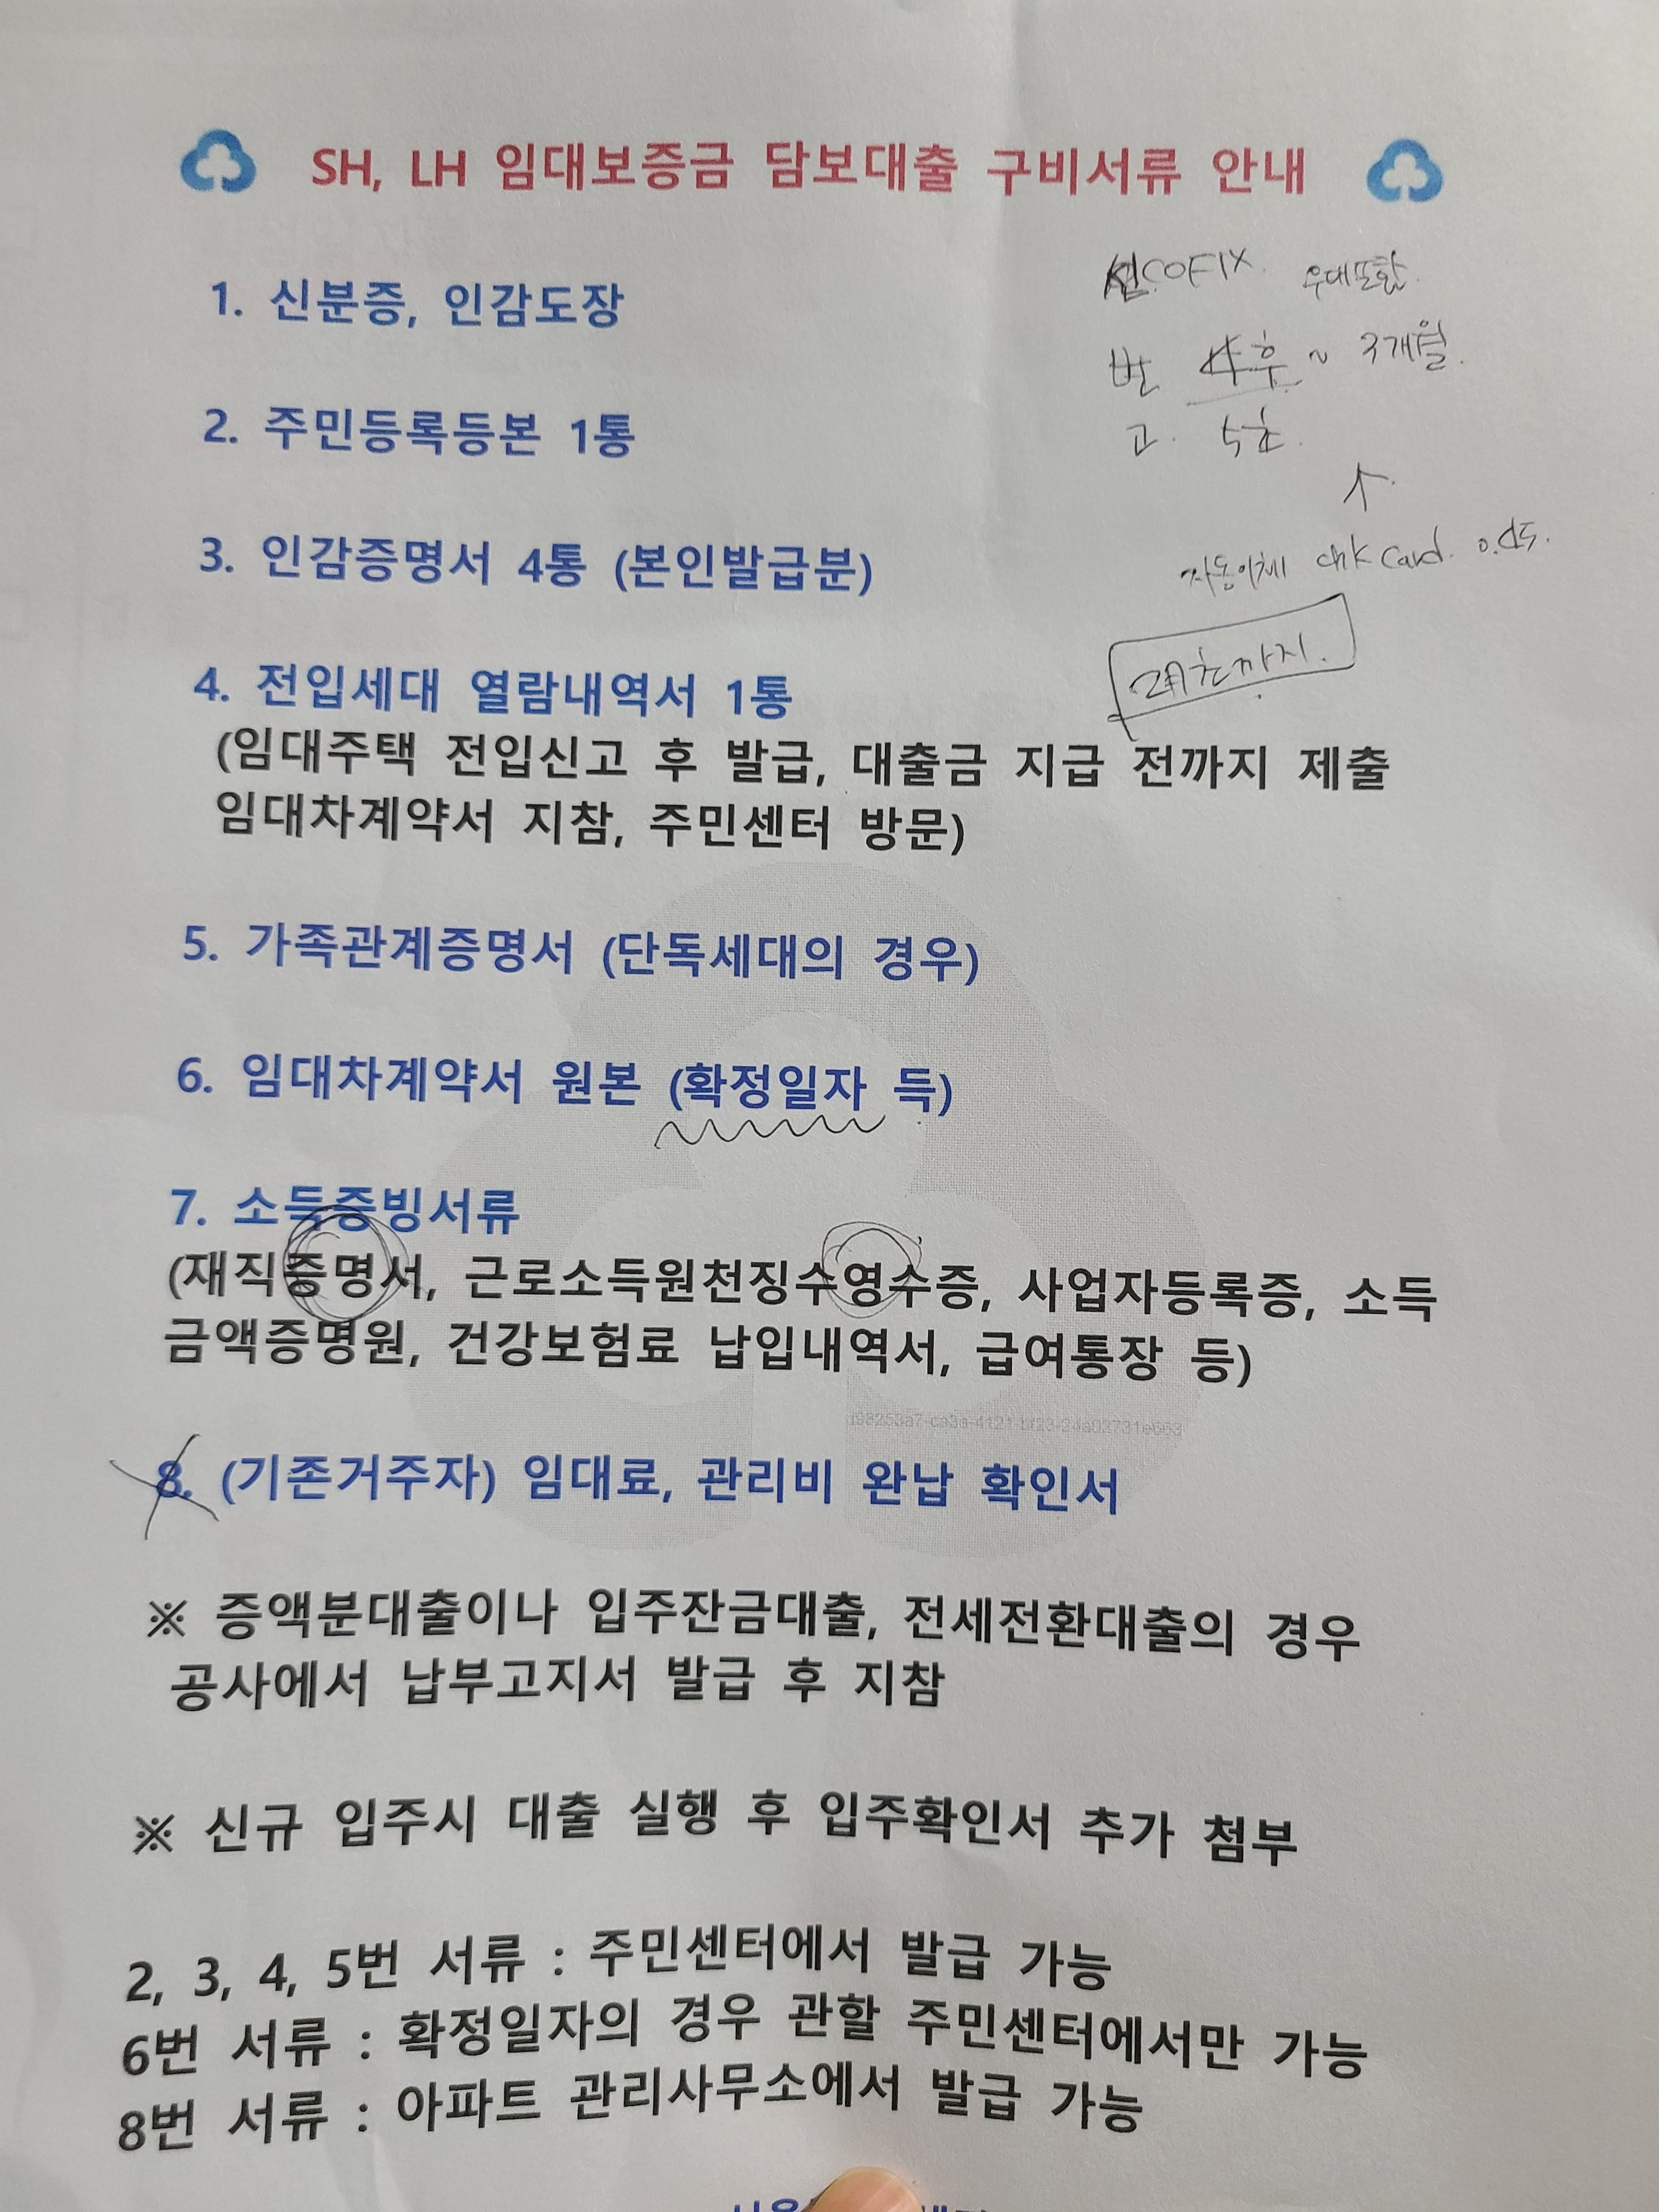 SH, LH 임대보증금 담보대출 구비서류 안내
COFIX. 우대포함.
1. 신분증, 인감도장
변 4후 ~ 3개월.
고. 5초.
2. 주민등록등본 1통
3. 인감증명서 4통 (본인발급분)
자동이체 chk card.
4. 전입세대 열람내역서 1통
(임대주택 전입신고 후 발급, 대출금 지급 전까지 제출
임대차계약서 지참, 주민센터 방문)
5. 가족관계증명서 (단독세대의 경우)
6. 임대차계약서 원본 (확정일자 득)
7. 소득증빙서류
(재직증명서, 근로소득원천징수영수증, 사업자등록증, 소득
금액증명원, 건강보험료 납입내역서, 급여통장 등)
8. (기존거주자) 임대료, 관리비 완납 확인서
※ 증액분대출이나 입주잔금대출, 전세전환대출의 경우
공사에서 납부고지서 발급 후 지참
※ 신규 입주시 대출 실행 후 입주확인서 추가 첨부
2, 3, 4, 5번 서류 : 주민센터에서 발급 가능
6번 서류 : 확정일자의 경우 관할 주민센터에서만 가능
8번 서류 : 아파트 관리사무소에서 발급 가능